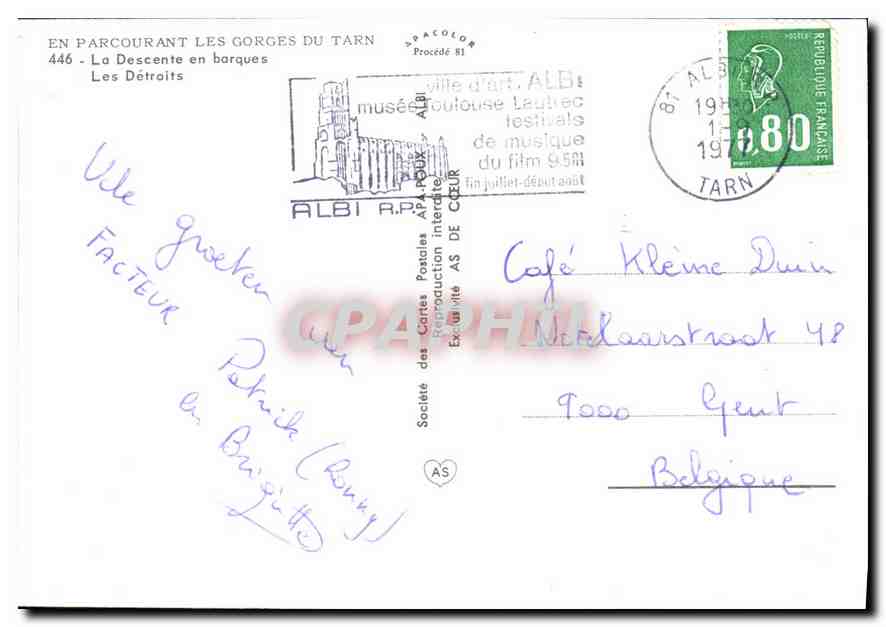 EN PARCOURANT LES GORGES DU TARN
446 - La Descente en barques
Les Détroits
APACOLOR
Procédé 81
ville d'art. ALBI
musée Toulouse Lautrec
festivals
de musique
du film 9.5m
fin juillet-début août
ALBI R.P.
81 ALBI
19H
1-9
1977
TARN
POSTES
REPUBLIQUE FRANÇAISE
0,80
Vele groeten van
Patrick (Ronny)
en Brigitte
FACTEUR
Société des Cartes Postales APA-POUX - ALBI
Reproduction interdite
Exclusivité AS DE CŒUR
AS
Café Kleine Duin
48
9000 Gent
Belgique
CPAPHIL